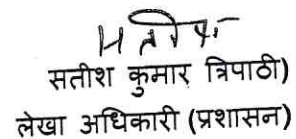 सतीश
सतीश कुमार त्रिपाठी)
लेखा अधिकारी (प्रशासन)